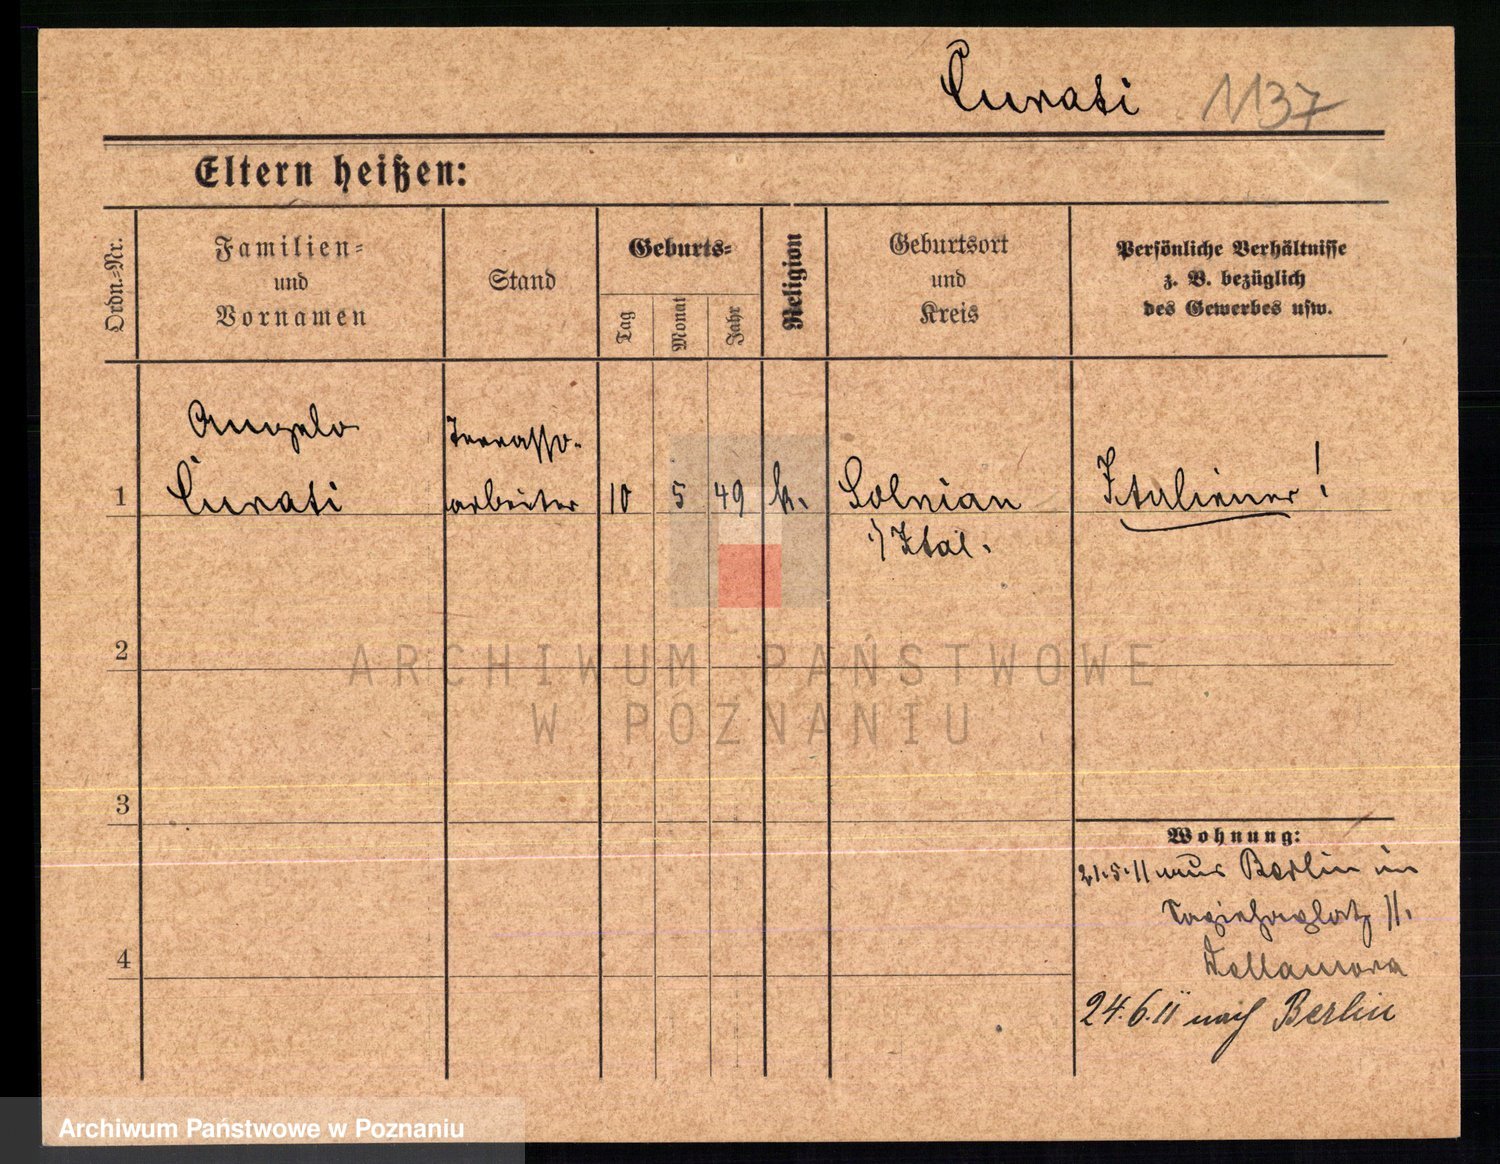 Curati 1137
Eltern heißen:
Ordn.-Nr.
Familien-
und
Vornamen
Stand
Geburts-
Tag
Monat
Jahr
Religion
Geburtsort
und
Kreis
Persönliche Verhältnisse
z. B. bezüglich
des Gewerbes usw.
Angelo
Terrasso-
1 Curati arbeiter 10 5 49 k. Solnian Italiener!
i/Ital.
2
ARCHIWUM PAŃSTWOWE
W POZNANIU
3
Wohnung:
21.5.11 aus Berlin in
11.
4
Dellamora
24.6.11 nach Berlin
Archiwum Państwowe w Poznaniu